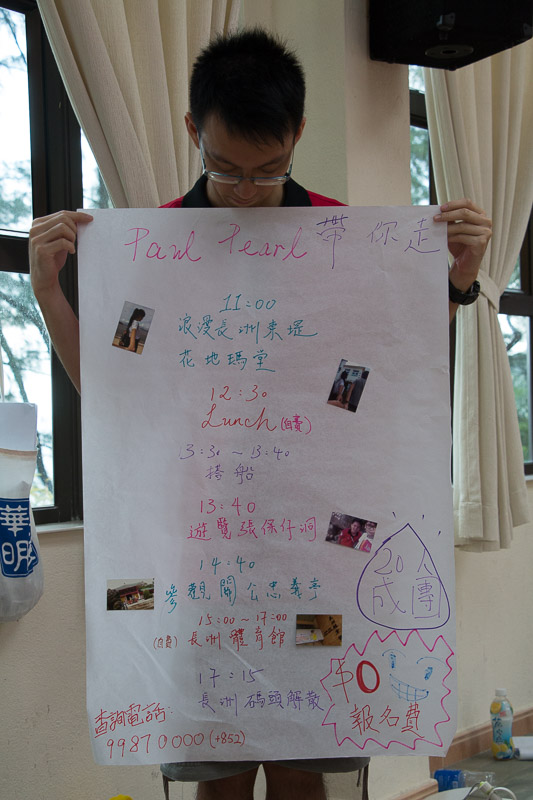 Paul Pearl 帶你走
11:00
浪漫長洲東堤
花地瑪堂
12:30
Lunch (自費)
3:30 ~ 13:40
搭船
13:40
遊覽張保仔洞
14:40
參觀關公忠義亭
15:00 ~ 17:00
(自費) 長洲體育館
17:15
長洲碼頭解散
20人
成團
$0
報名費
查詢電話:
99870000 (+852)
華明